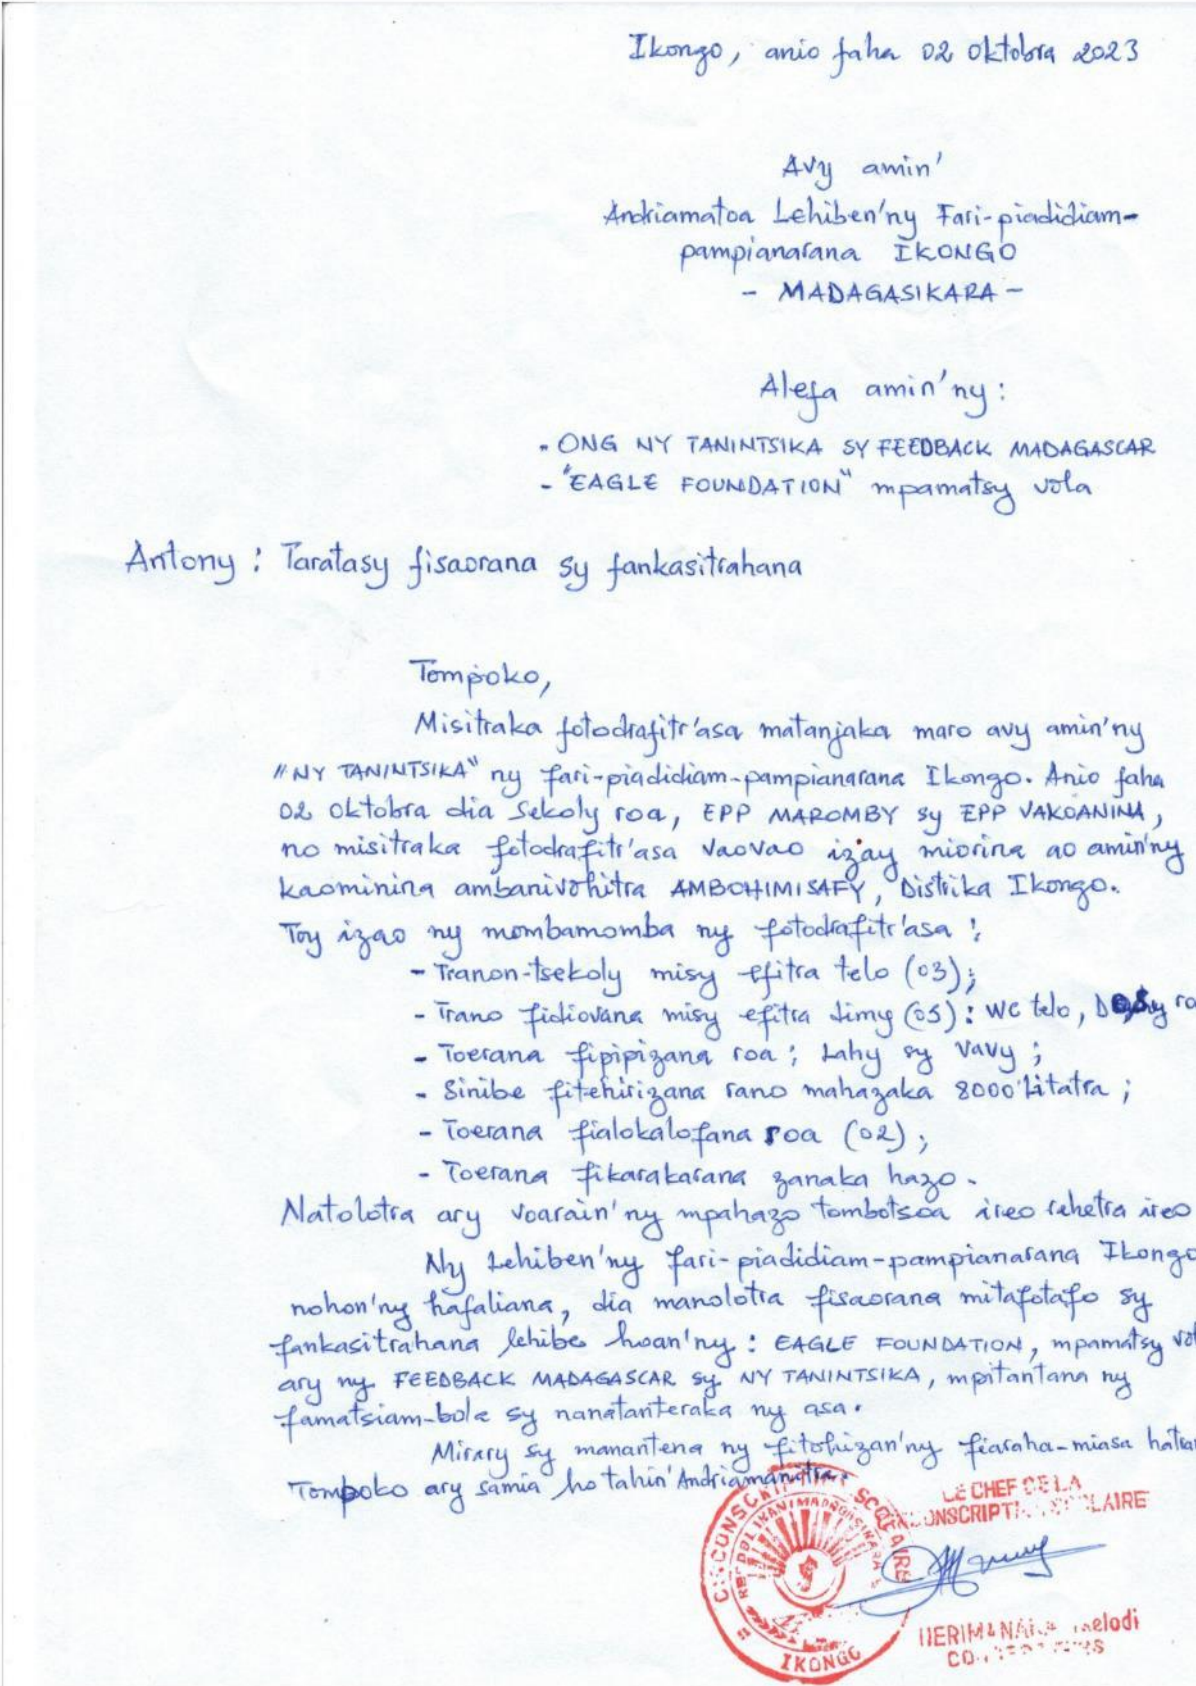 Ikongo, anio faha 02 oktobra 2023
Avy amin'
Andriamatoa Lehiben'ny Fari-piadidiam-
pampianarana IKONGO
- MADAGASIKARA -
Alefa amin'ny :
- ONG NY TANINTSIKA SY FEEDBACK MADAGASCAR
- "EAGLE FOUNDATION" mpamatsy vola
Antony : Taratasy fisaorana sy fankasitrahana
Tompoko,
Misitraka fotodrafitr'asa matanjaka maro avy amin'ny
"NY TANINTSIKA" ny fari-piadidiam-pampianarana Ikongo. Anio faha
02 oktobra dia sekoly roa, EPP MAROMBY sy EPP VAKOANINA,
no misitraka fotodrafitr'asa vaovao izay miorina ao amin'ny
kaominina ambanivohitra AMBOHIMISAFY, Distrika Ikongo.
Toy izao ny mombamomba ny fotodrafitr'asa :
- Tranon-tsekoly misy efitra telo (03);
- Trano fidiovana misy efitra dimy (05) : WC telo,
- Toerana fipipizana roa ; Lahy sy Vavy ;
- Sinibe fitehirizana rano mahazaka 8000 Litatra ;
- Toerana fialokalofana roa (02) ;
- Toerana fikarakarana zanaka hazo.
Natolotra ary voarain'ny mpahazo tombotsoa ireo rehetra ireo
Ny Lehiben'ny fari-piadidiam-pampianarana Ikongo
nohon'ny hafaliana, dia manolotra fisaorana mitafotafo sy
fankasitrahana lehibe hoan'ny : EAGLE FOUNDATION, mpamatsy
ary ny FEEDBACK MADAGASCAR sy NY TANINTSIKA, mpitantana ny
famatsiam-bola sy nanatanteraka ny asa.
Mirary sy manantena ny fitohizan'ny fiaraha-miasa
Tompoko ary samia ho tahin'Andriamanitra.
LE CHEF DE LA
CIRCONSCRIPTION SCOLAIRE
IKONGO